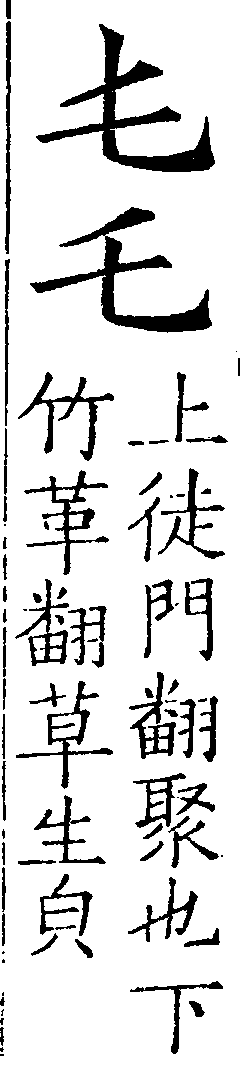 乇
上徒門翻聚也下
竹革翻草生㒵